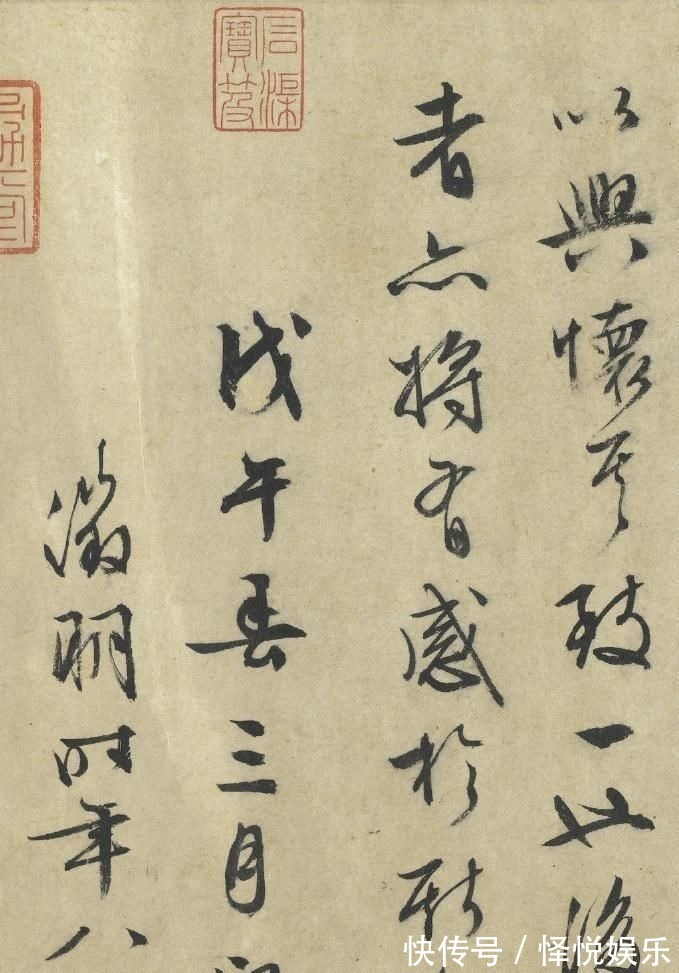 以興懷其致一也後
者亦將有感於斯
戊午春三月
徵明時年八
快传号 / 怿悦娱乐